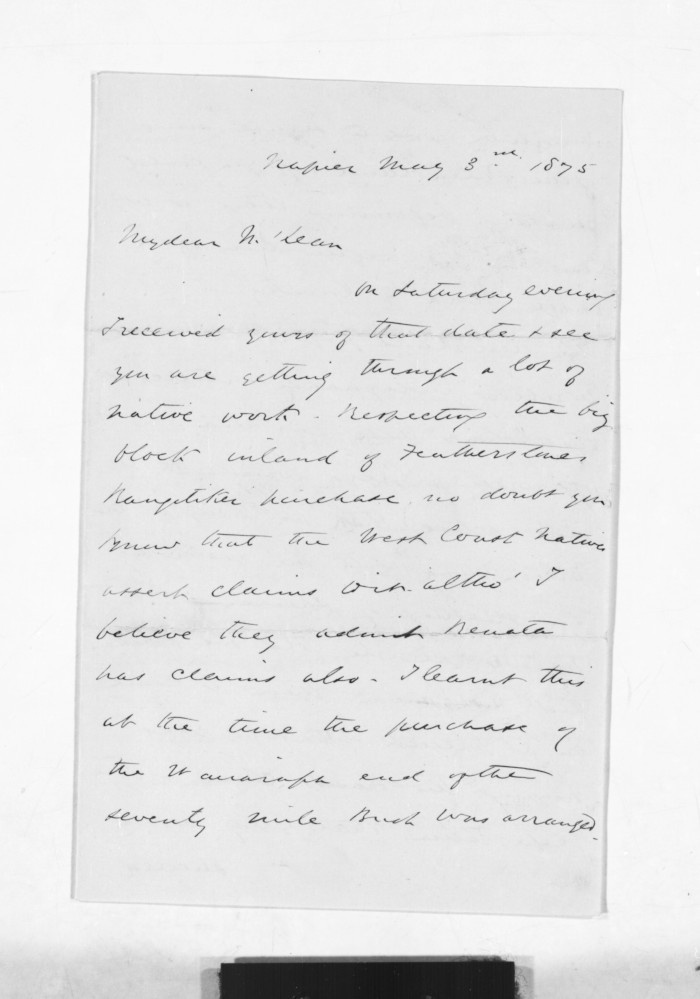 Napier May 3rd. 1875
My dear McLean
On Saturday evening
I received yours of that date & see
you are getting through a lot of
native work. Respecting the big
block inland of Featherstones
Rangitikei purchase no doubt you
know that the West Coast Natives
assert claims altho' I
believe they admit Renata
has claims also. I learnt this
at the time the purchase of
the Wairarapa end of the
seventy mile Bush was arranged.